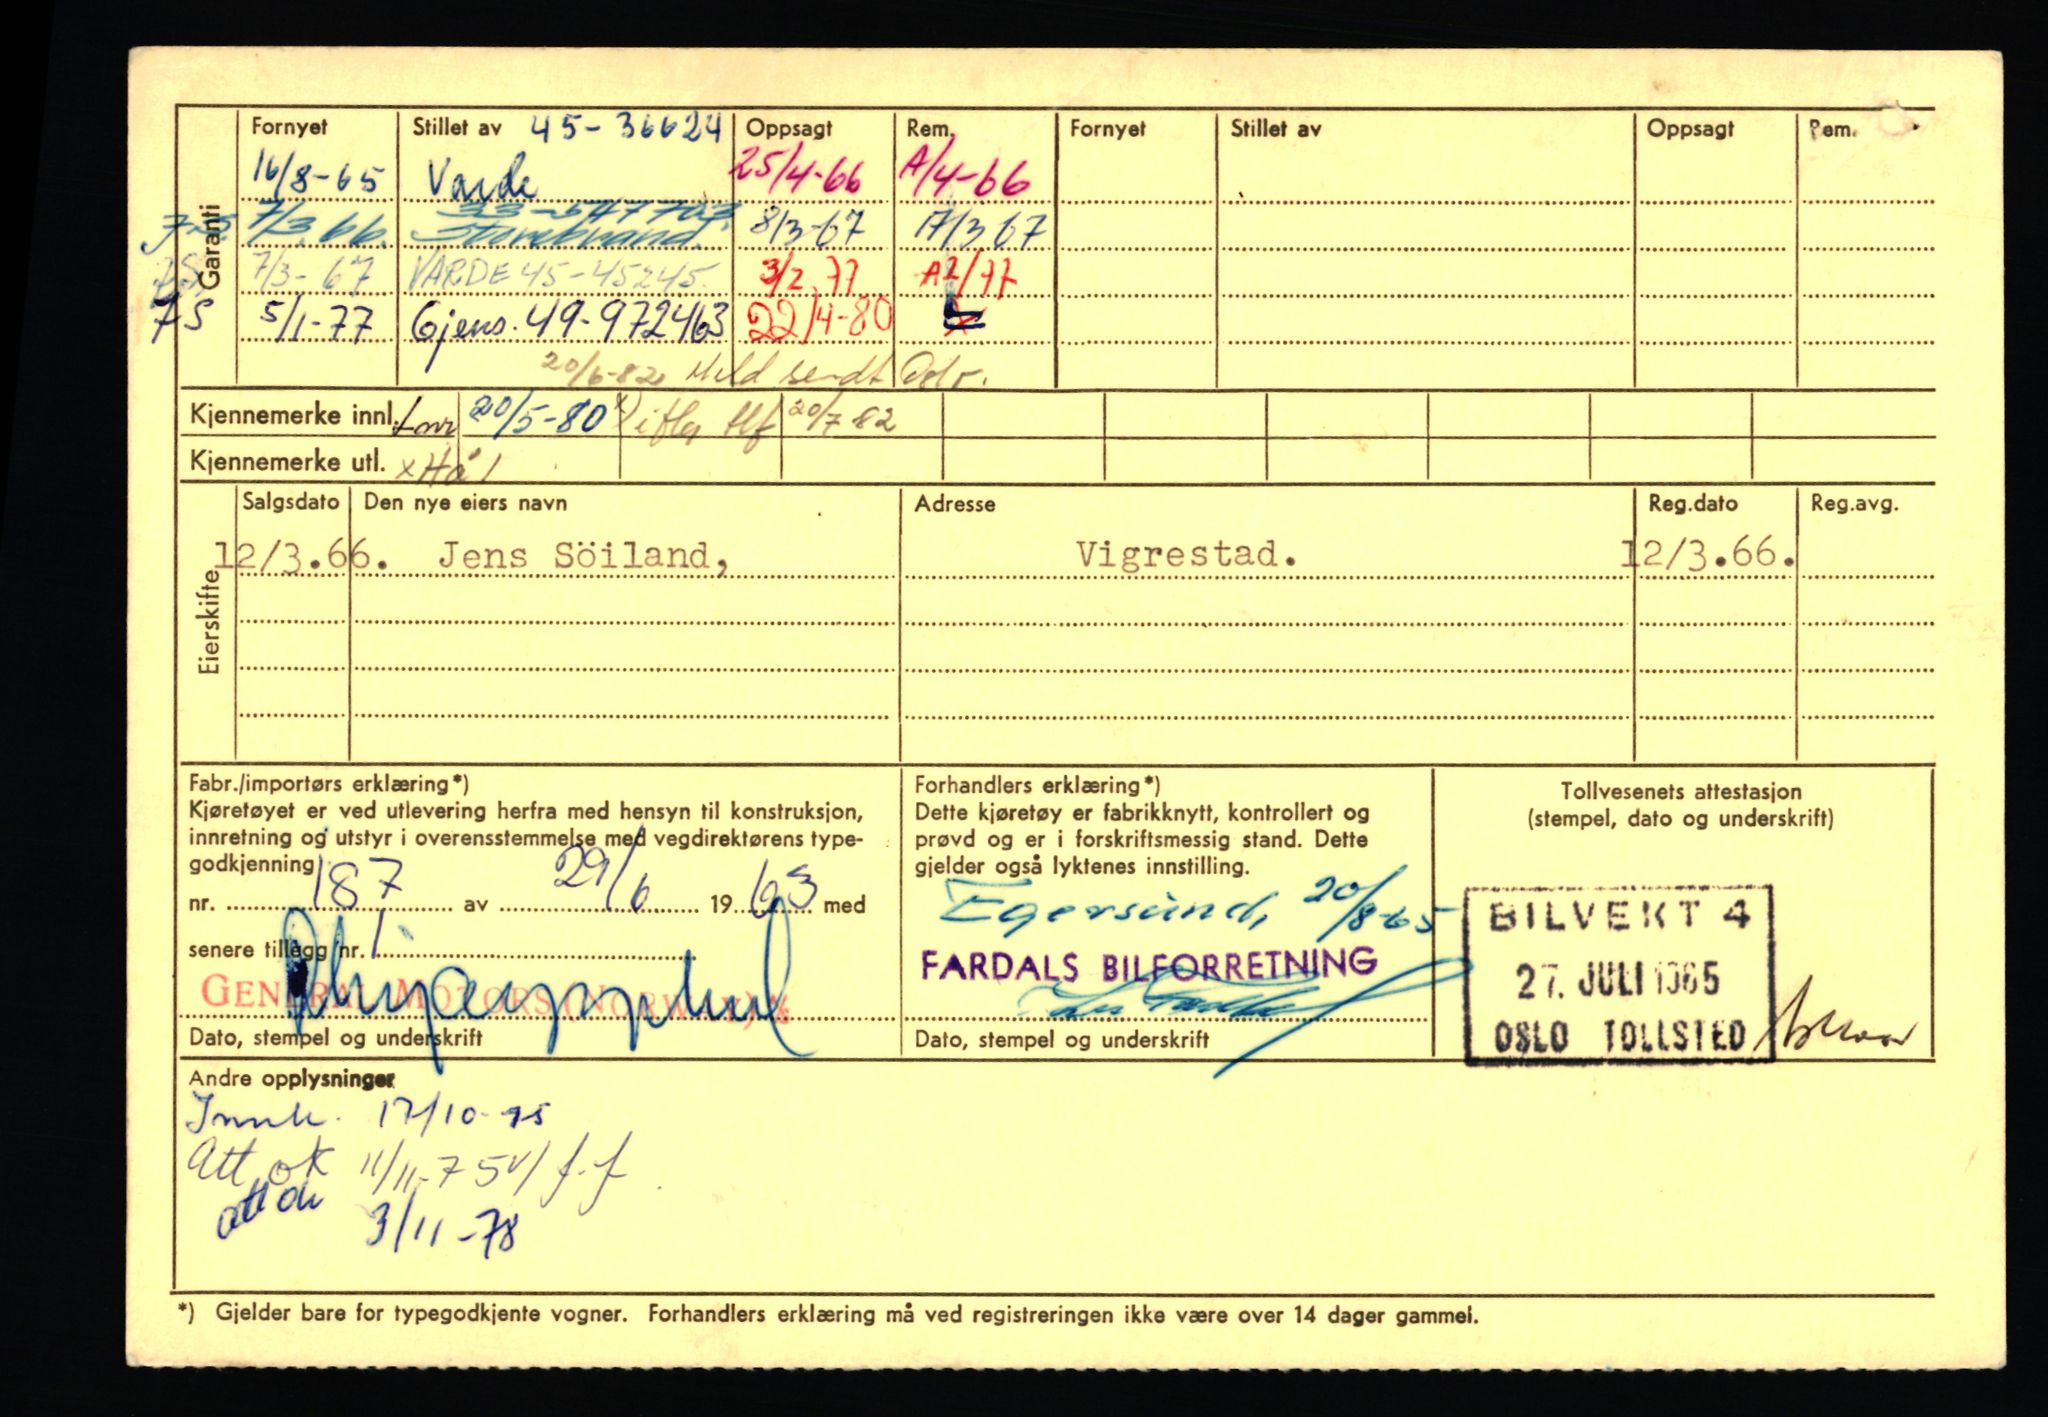 Garanti
Fornyet Stillet av 45-36624 Oppsagt Rem. Fornyet Stillet av Oppsagt Rem.
16/8-65 Varde 25/4-66 A/4-66
7/3.66. Storebrand. 8/3-67 17/3 67
7/3-67 VARDE 45-45245. 3/2.77 A2/77
JS 5/1-77 Gjens. 49-972463 22/4-80
20/6-82 Meld sendt
Kjennemerke innl. 20/5-80 x) 20/7 82
Kjennemerke utl. x Hå
Eierskifte
Salgsdato Den nye eiers navn Adresse Reg.dato Reg.avg.
12/3.66. Jens Söiland, Vigrestad. 12/3.66.
Fabr./importørs erklæring*)
Kjøretøyet er ved utlevering herfra med hensyn til konstruksjon,
innretning og utstyr i overensstemmelse med vegdirektørens type-
godkjenning
nr. 187 av 29/6 1963 med
senere tillegg nr. 1
GENERAL MOTORS (NORWAY) A/S
Dato, stempel og underskrift
Forhandlers erklæring*)
Dette kjøretøy er fabrikknytt, kontrollert og
prøvd og er i forskriftsmessig stand. Dette
gjelder også lyktenes innstilling.
Egersund, 20/8-65
FARDALS BILFORRETNING
Dato, stempel og underskrift
Tollvesenets attestasjon
(stempel, dato og underskrift)
BILVEKT 4
27. JULI 1965
OSLO TOLLSTED
Andre opplysninger
Innk. 17/10-75
Att ok 11/11-75 v/ f.f
att ok 3/11-78
*) Gjelder bare for typegodkjente vogner. Forhandlers erklæring må ved registreringen ikke være over 14 dager gammel.